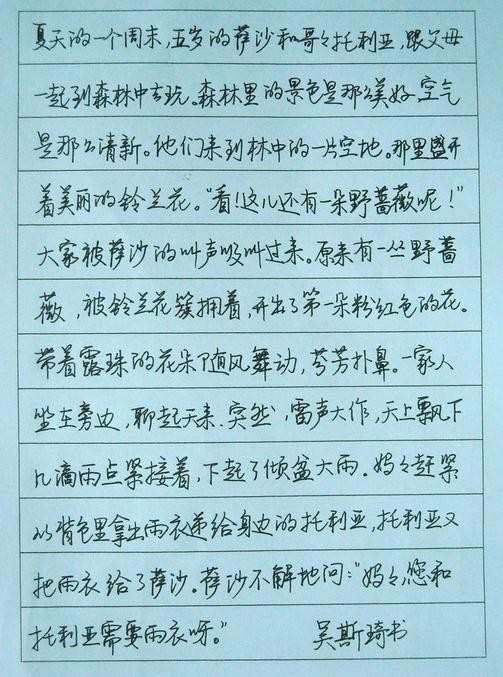 夏天的一个周末,五岁的萨沙和哥々托利亚,跟父母
一起到森林中去玩。森林里的景色是那么美好 空气
是那么清新。他们来到林中的一片空地。那里盛开
着美丽的铃兰花。“看!这儿还有一朵野蔷薇呢!”
大家被萨沙的叫声吸叫过来。原来有一丛野蔷
薇,被铃兰花簇拥着,开出了第一朵粉红色的花。
带着露珠的花朵随风舞动,芬芳扑鼻。一家人
坐在旁边,聊起天来.突然,雷声大作,天上飘下
几滴雨点紧接着,下起了倾盆大雨。妈々赶紧
从背包里拿出雨衣递给身边的托利亚,托利亚又
把雨衣给了萨沙。萨沙不解地问:“妈々,您和
托利亚需要雨衣呀。” 吴斯琦书